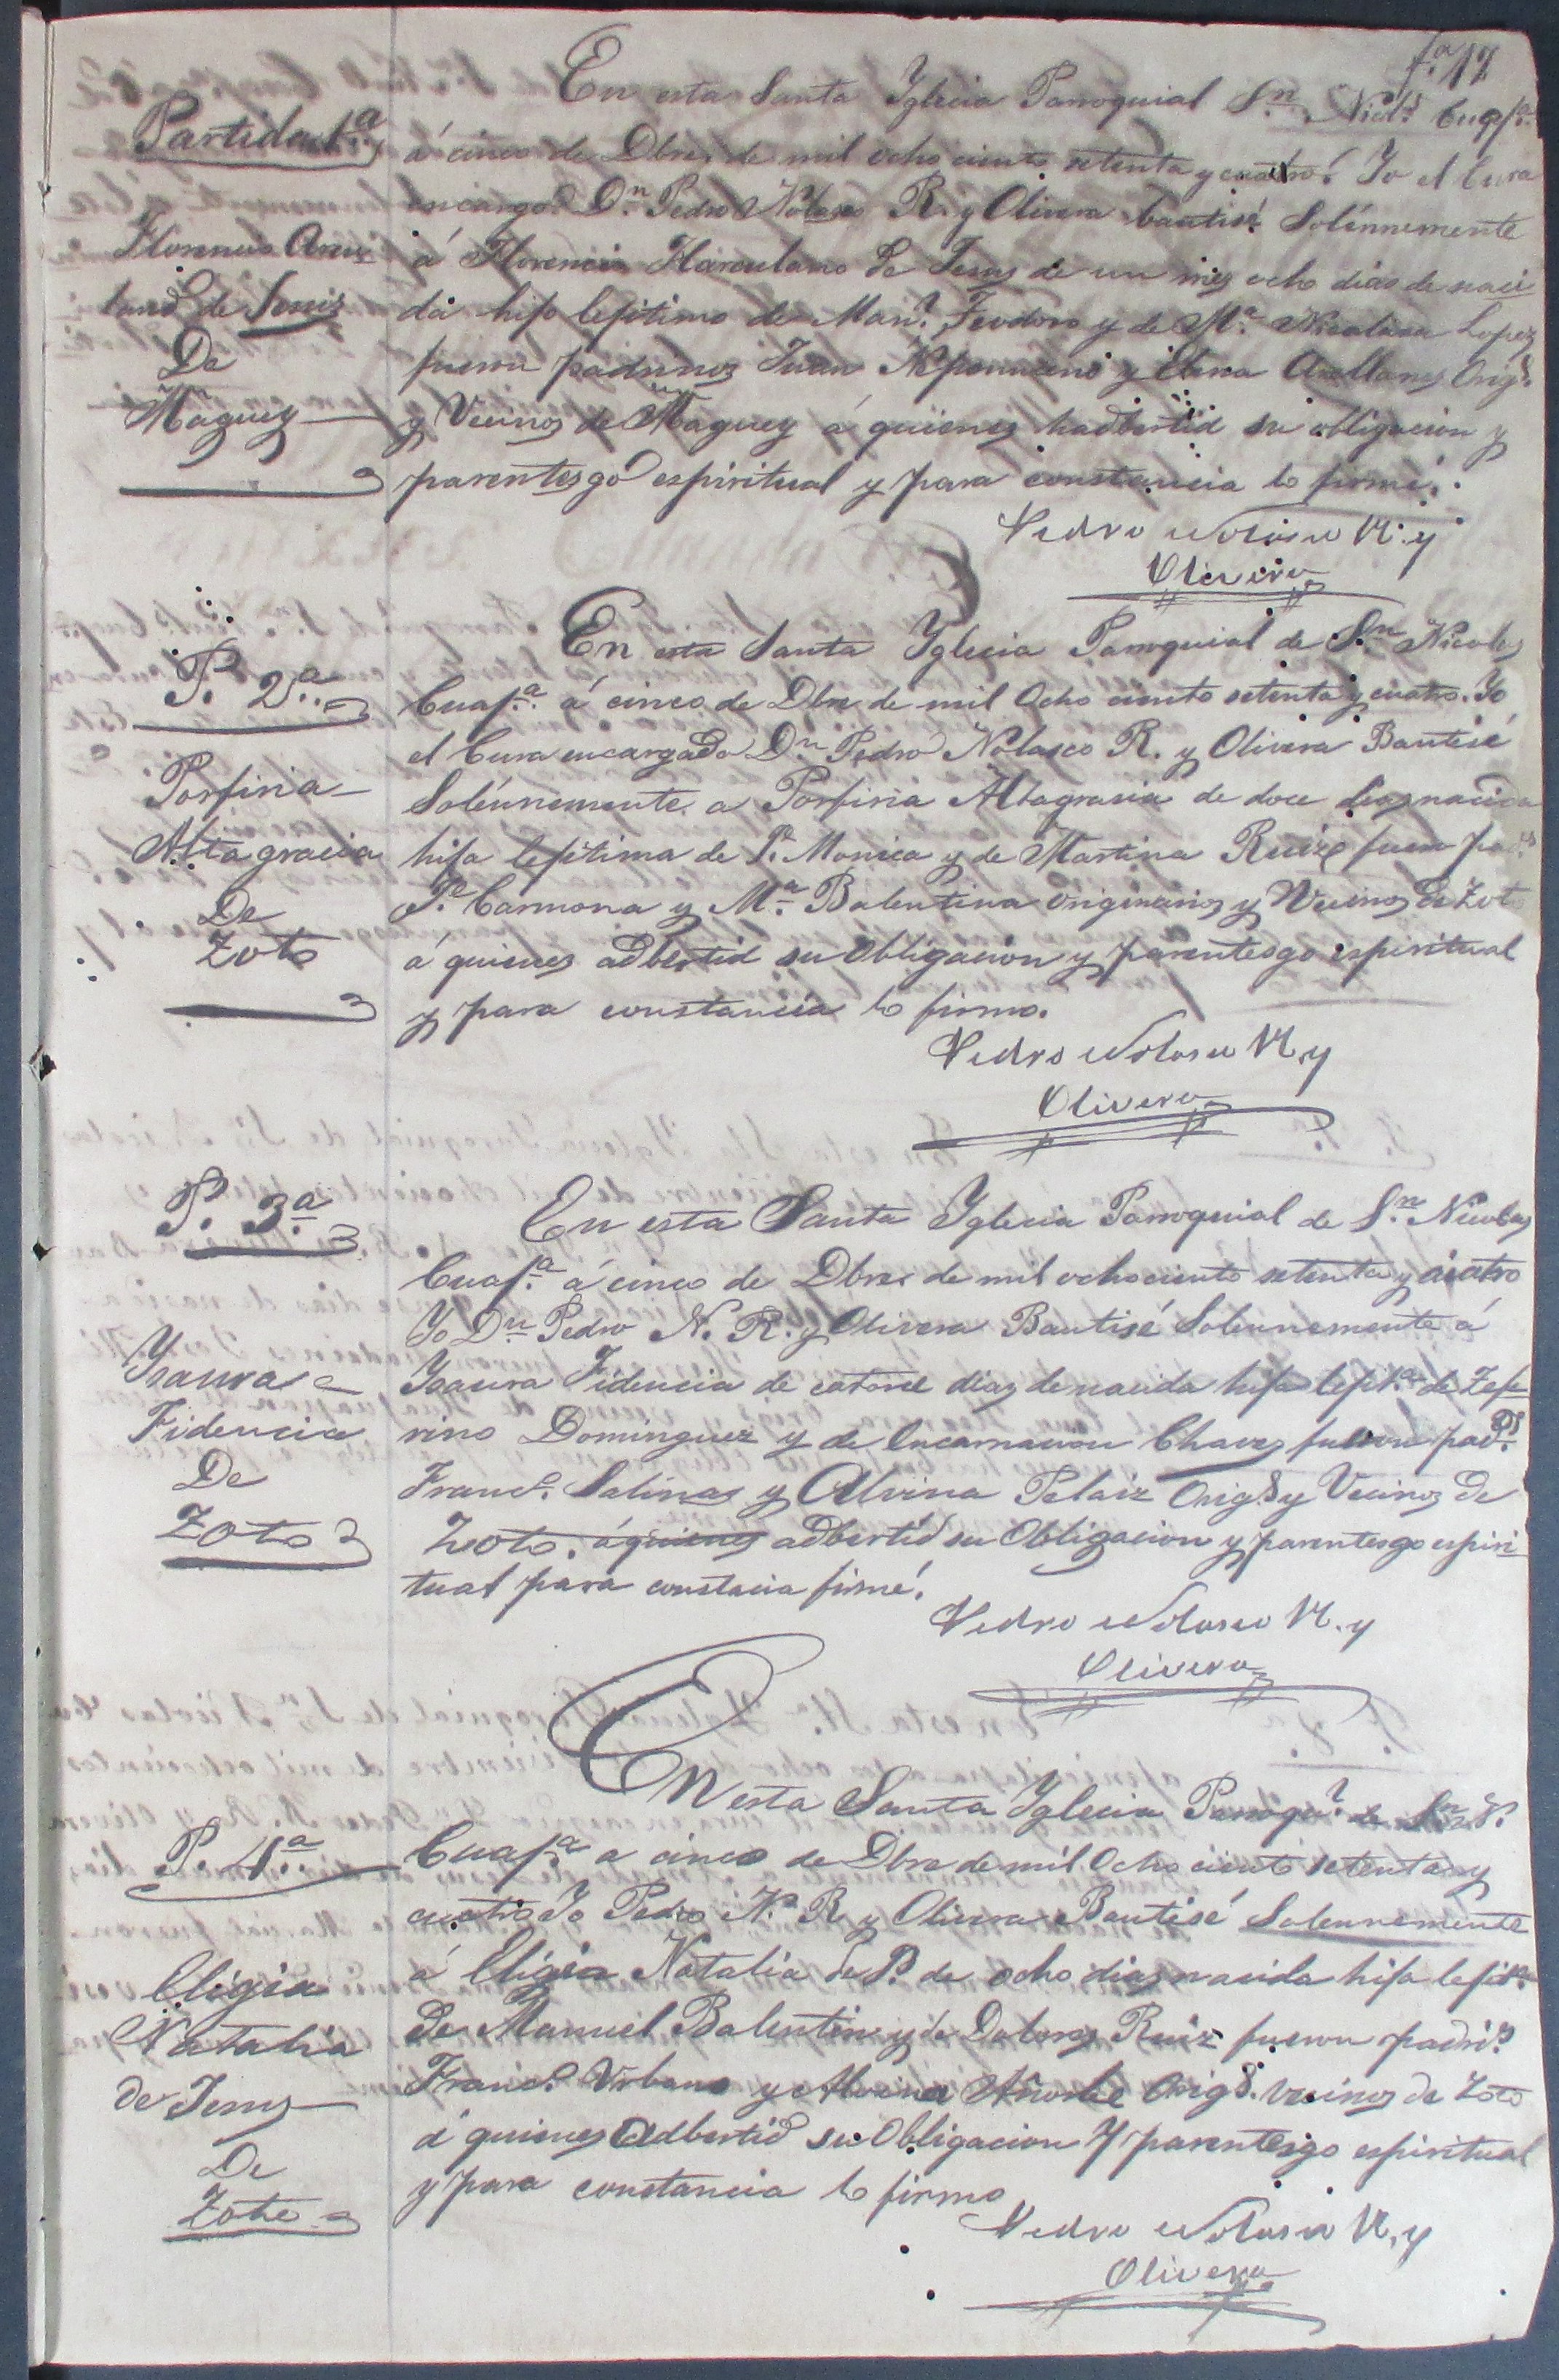 fª 17
Partida 1ª
Florencio
de Jesus
De
Maguey
En esta Santa Yglecia Parroquial Sn. Nicls. Cuajª.
á cinco de Dbre, de mil ocho ciento setenta y cuatro. Yo el Cura
encargo. Dn. Pedro Nolasco R. y Olivera bautisé Solénnemente
á Florencio Harculano de Jesus de un mes ocho dias de naci
da hijo lejitimo de Manl. Teodoro y de Mª. Nicolasa Lopez
fueron padrinos Juan Nepomuceno y Elena Arellanes Origs.
y Vecinos de Maguey á quienes hadbertid su obligacion y
parentesgo espiritual y para constancia lo firmé.
Pedro Nolasco R. y
Olivera
P. 2ª.
Porfiria
Altagracia
De
Zoto
En esta Santa Yglecia Parroquial de Sn. Nicolas
Cuajª. á cinco de Dbre de mil Ocho ciento setenta y cuatro. Yo
el Cura encargado Dn Pedro Nolasco R. y Olivera Bautisé
Solénnemente a Porfiria Altagrasia de doce dias nacida
hija lejitima de Pº. Monica y de Martina Ruiz fuen pads
Pº Carmona y Mª. Balentina originarios y Vecinos de Zoto
á quienes adbertid su obligacion y parentesgo espiritual
y para constancia lo firmo.
Pedro Nolasco R. y
Olivera
P. 3ª
Ysaura
Fidencia
De
Zoto
En esta Santa Yglecia Parroquial de Sn. Nicolas
Cuajª. á cinco de Dbre de mil ocho ciento setenta y cuatro
Yo Dn Pedro N. R. y Olivera Bautisé Solennemente á
Ysaura Fidencia de catorce dias de nacida hija lejitª. de Zefe
rino Dominguez y de Encarnacion Chaves fueron pads.
Franco. Salinas y Alvina Pelaiz Origs y Vecinos de
Zoto. á quienes adbertid su Obligacion y parentesgo espiri
tual para constacia firmé.
Pedro Nolasco R. y
Olivera
P. 4ª.
Eligia
Natalia
de Jesus
De
Zoto
En esta Santa Yglecia Parroql. de Sn. N.
Cuajª. a cinco de Dbre de mil Ocho ciento setenta y
cuatro Yo Pedro N. R y Olivera Bautisé Solennemente
á Eligia Natalia de P. de ocho dias nacida hija lejitª.
de Manuel Balentin y de Dolores Ruiz fueron padris.
Franco. Urbano y Alvina Añorbe Origs. vecinos de Zoto
á quienes adbertid su Obligacion y parentesgo espiritual
y para constancia lo firmo
Pedro Nolasco R. y
Olivera